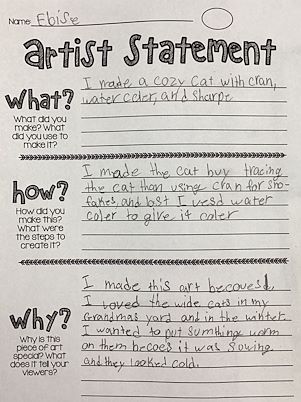 Name Ebise
artist Statement
What?
What did you
make? What
did you use to
make it?
I made a cozy cat with cran,
water coler, and sharpe
how?
How did you
make this?
What were
the steps to
create it?
I made the cat buy tracing
the cat than using cran for sno-
fakes, and last I uesd water
coler to give it coler
Why?
Why is this
piece of art
special? What
does it tell your
viewers?
I made this art becouse
I loved the wide cats in my
Grandmas yard and in the winter
I wanted to put sumthing worm
on them becoes it was sowing
and they looked cold.